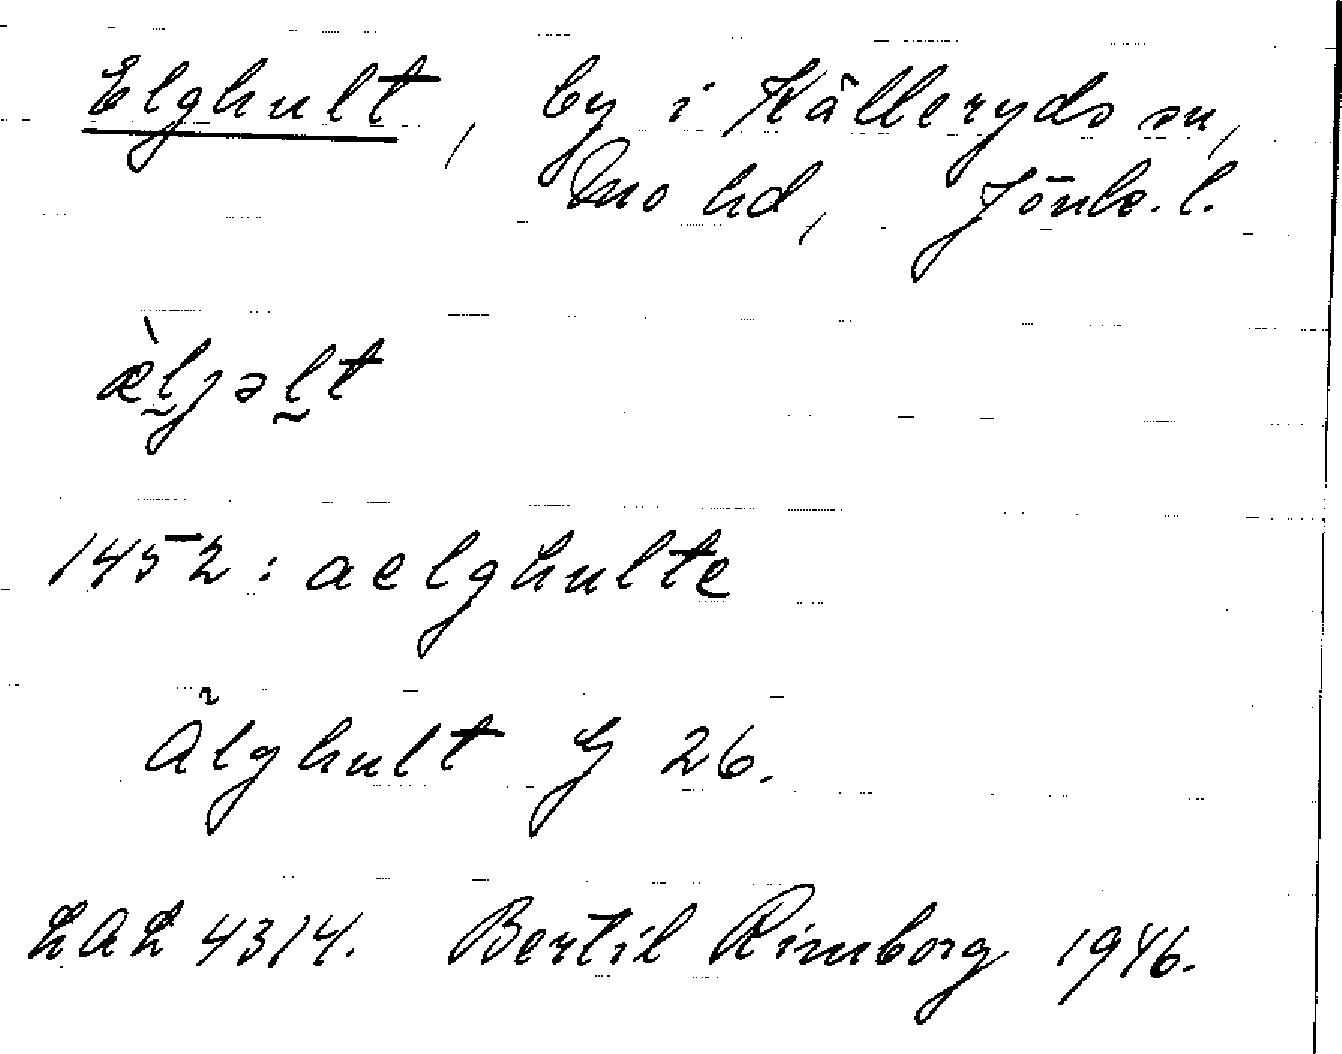 Elghult, by i Källeryds sn,
Mo hd, Jönk. l.
æ̀l̰jəl̰t
1452: aelghulte
Älghult G 26.
LAL 4314. Bertil Rimborg 1946.